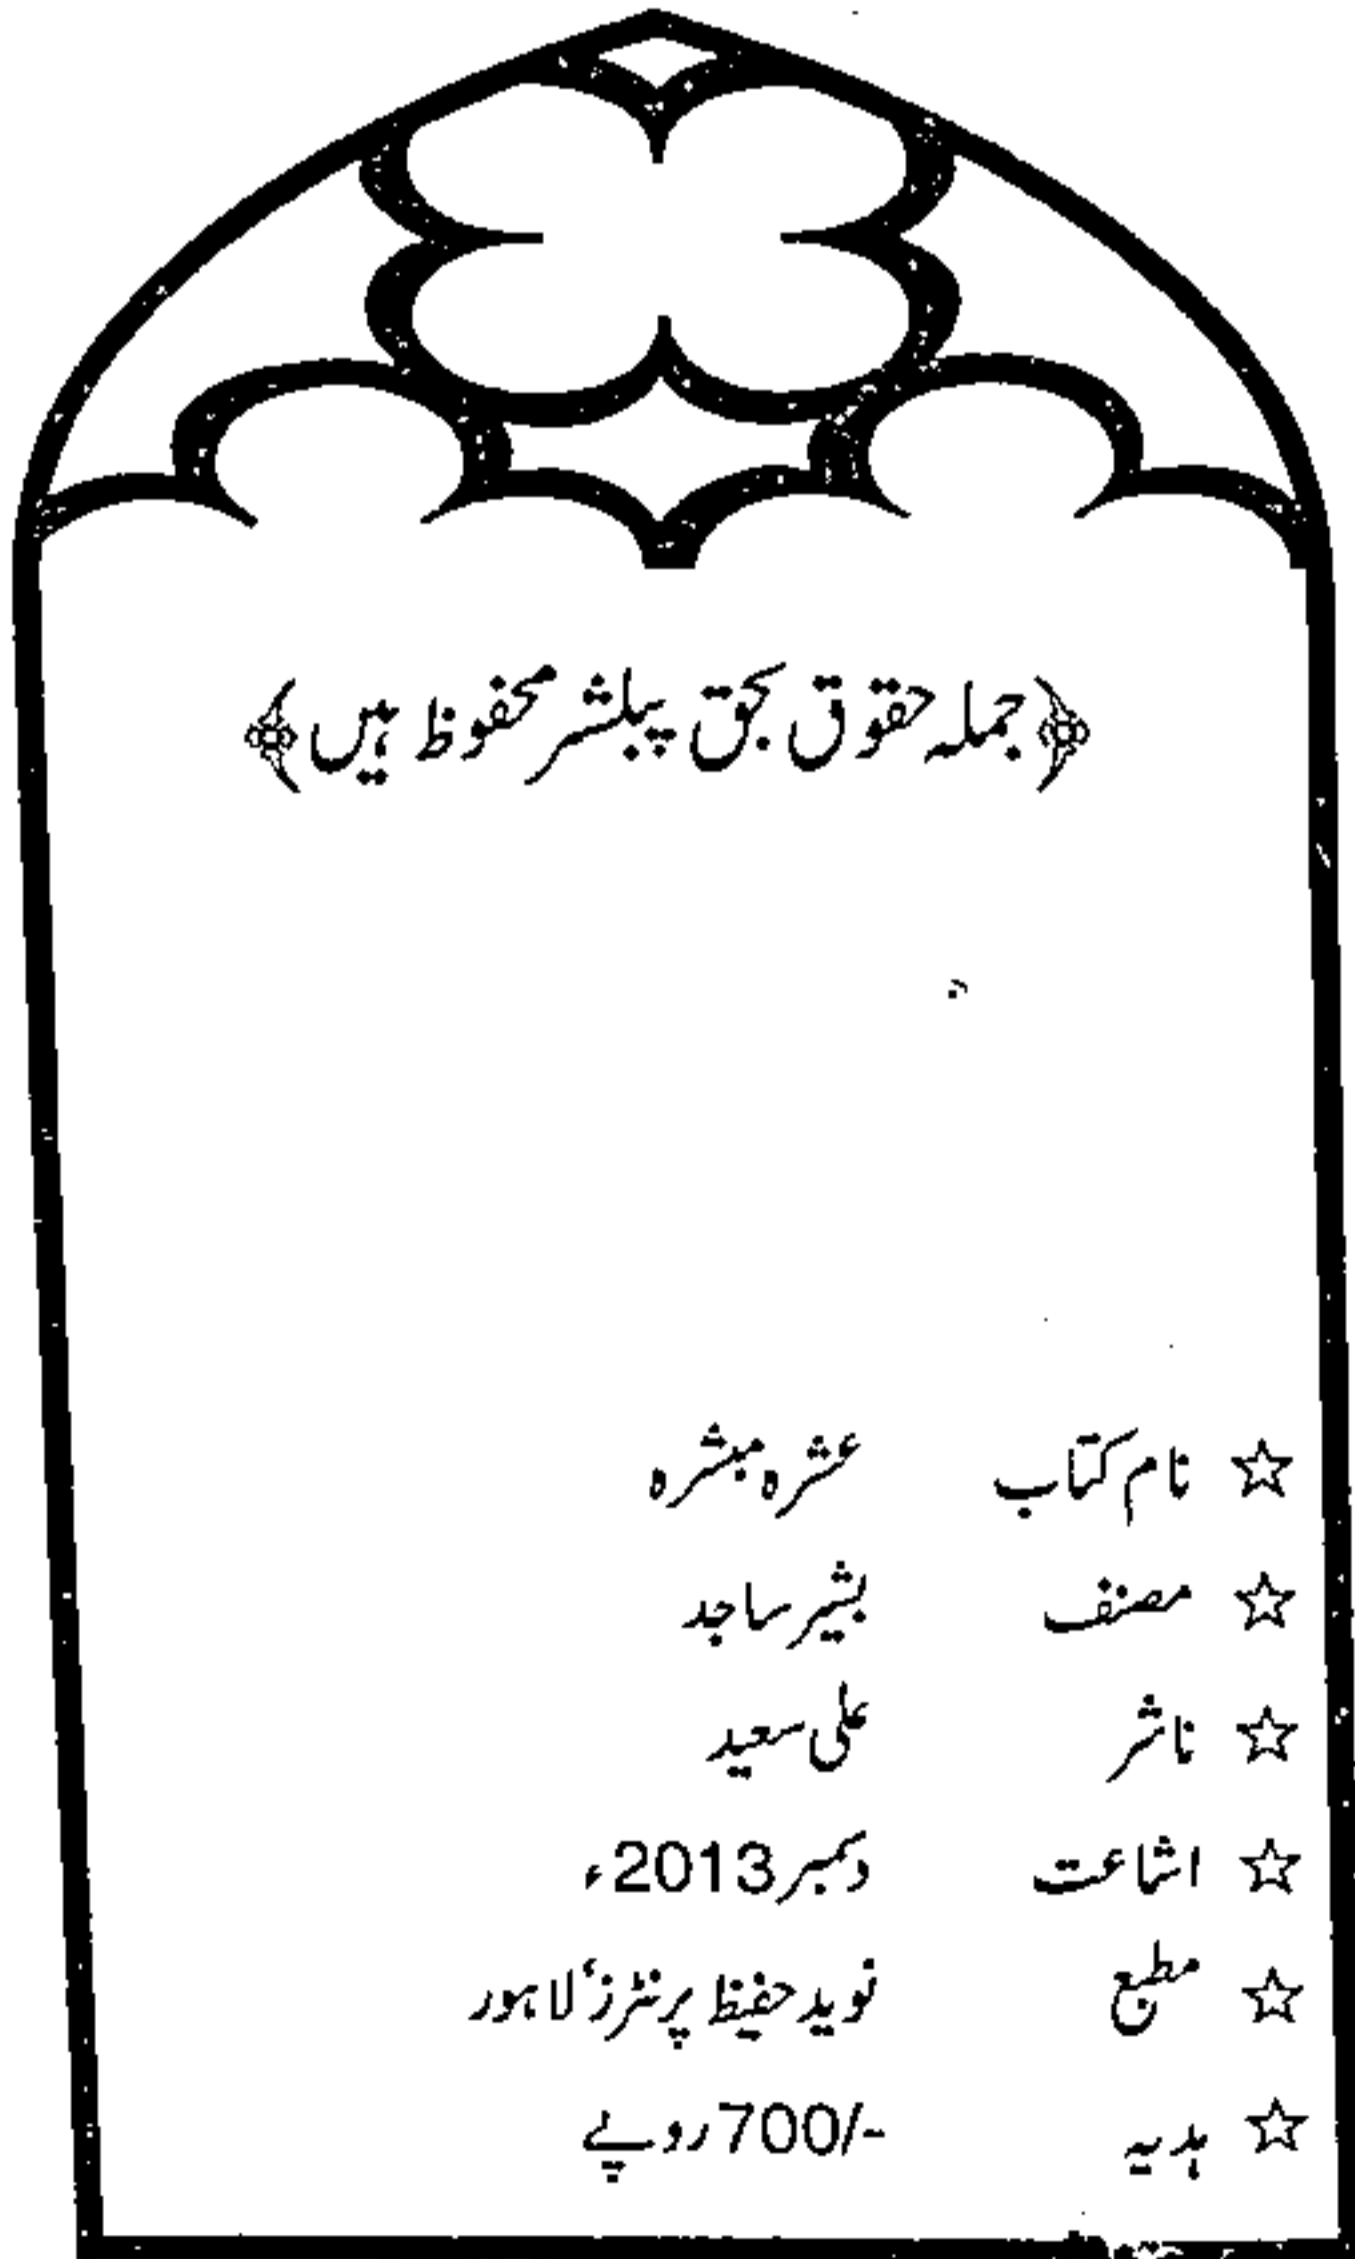 ﴿جملہ حقوق بحق پبلشر محفوظ ہیں﴾
☆ نام کتاب عشرہ مبشرہ
☆ مصنف بشیر ساجد
☆ ناشر علی سعید
☆ اشاعت دسمبر 2013ء
☆ مطبع نوید حفیظ پرنٹرز، لاہور
☆ ہدیہ 700/- روپے